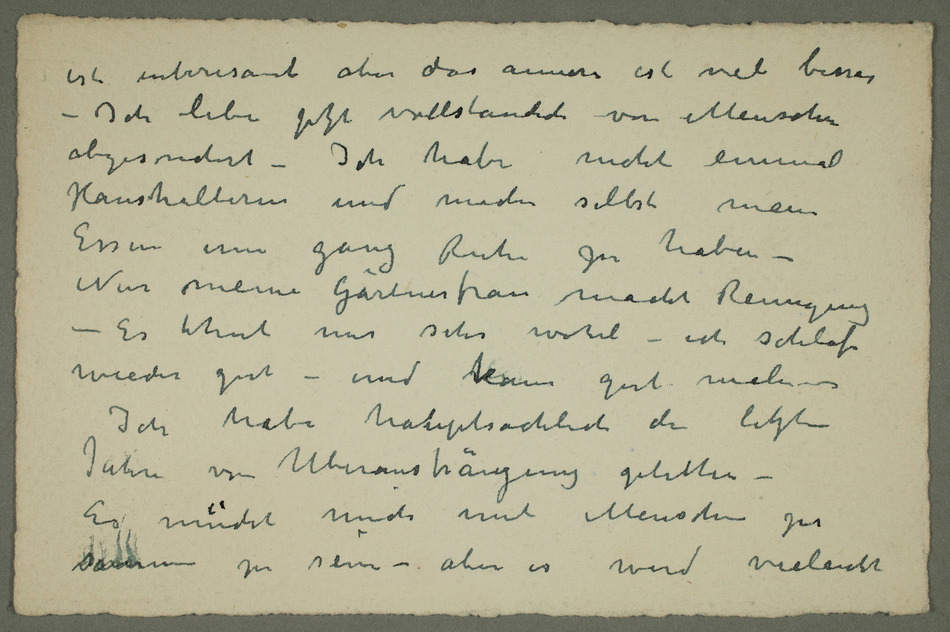 ist interesant aber das annere ist viel besser
– Ich lebe jetzt vollständich von Menschen
abgesondert – Ich habe nicht einmal
Haushälterin und mache selbst mein
Essen um ganz Ruhe zu haben –
Nur meine Gärtnerfrau macht Reinigung
– Es thut mir sehr wohl – ich schlafe
wieder gut – und kann gut malen –
Ich habe hauptsächlich die letzten
Jahre von Uberansträngung gelitten –
Es müdet mich mit Menschen zu
sammen zu sein – aber es wird vieleicht